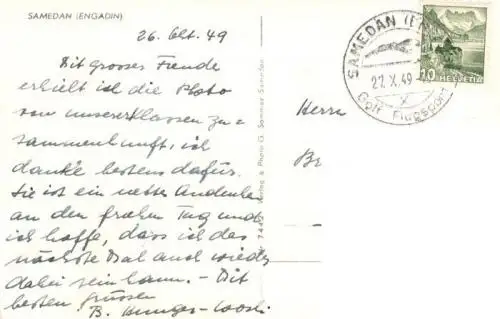 SAMEDAN (ENGADIN)
26. Okt. 49
Mit grosser Freude
erhielt ich die Photo
von unserer Klassenzu=
sammenkunft, ich
danke bestens dafür.
Sie ist ein nettes Andenken
an den frohen Tag und
ich hoffe, dass ich das
nächste Mal auch wieder
dabei sein kann. – Mit
besten Grüssen
B.
Verlag & Photo G. Sommer Samedan
SAMEDAN (E
27.X.49
Golf Flugsport
10 HELVETIA
Herrn
Br